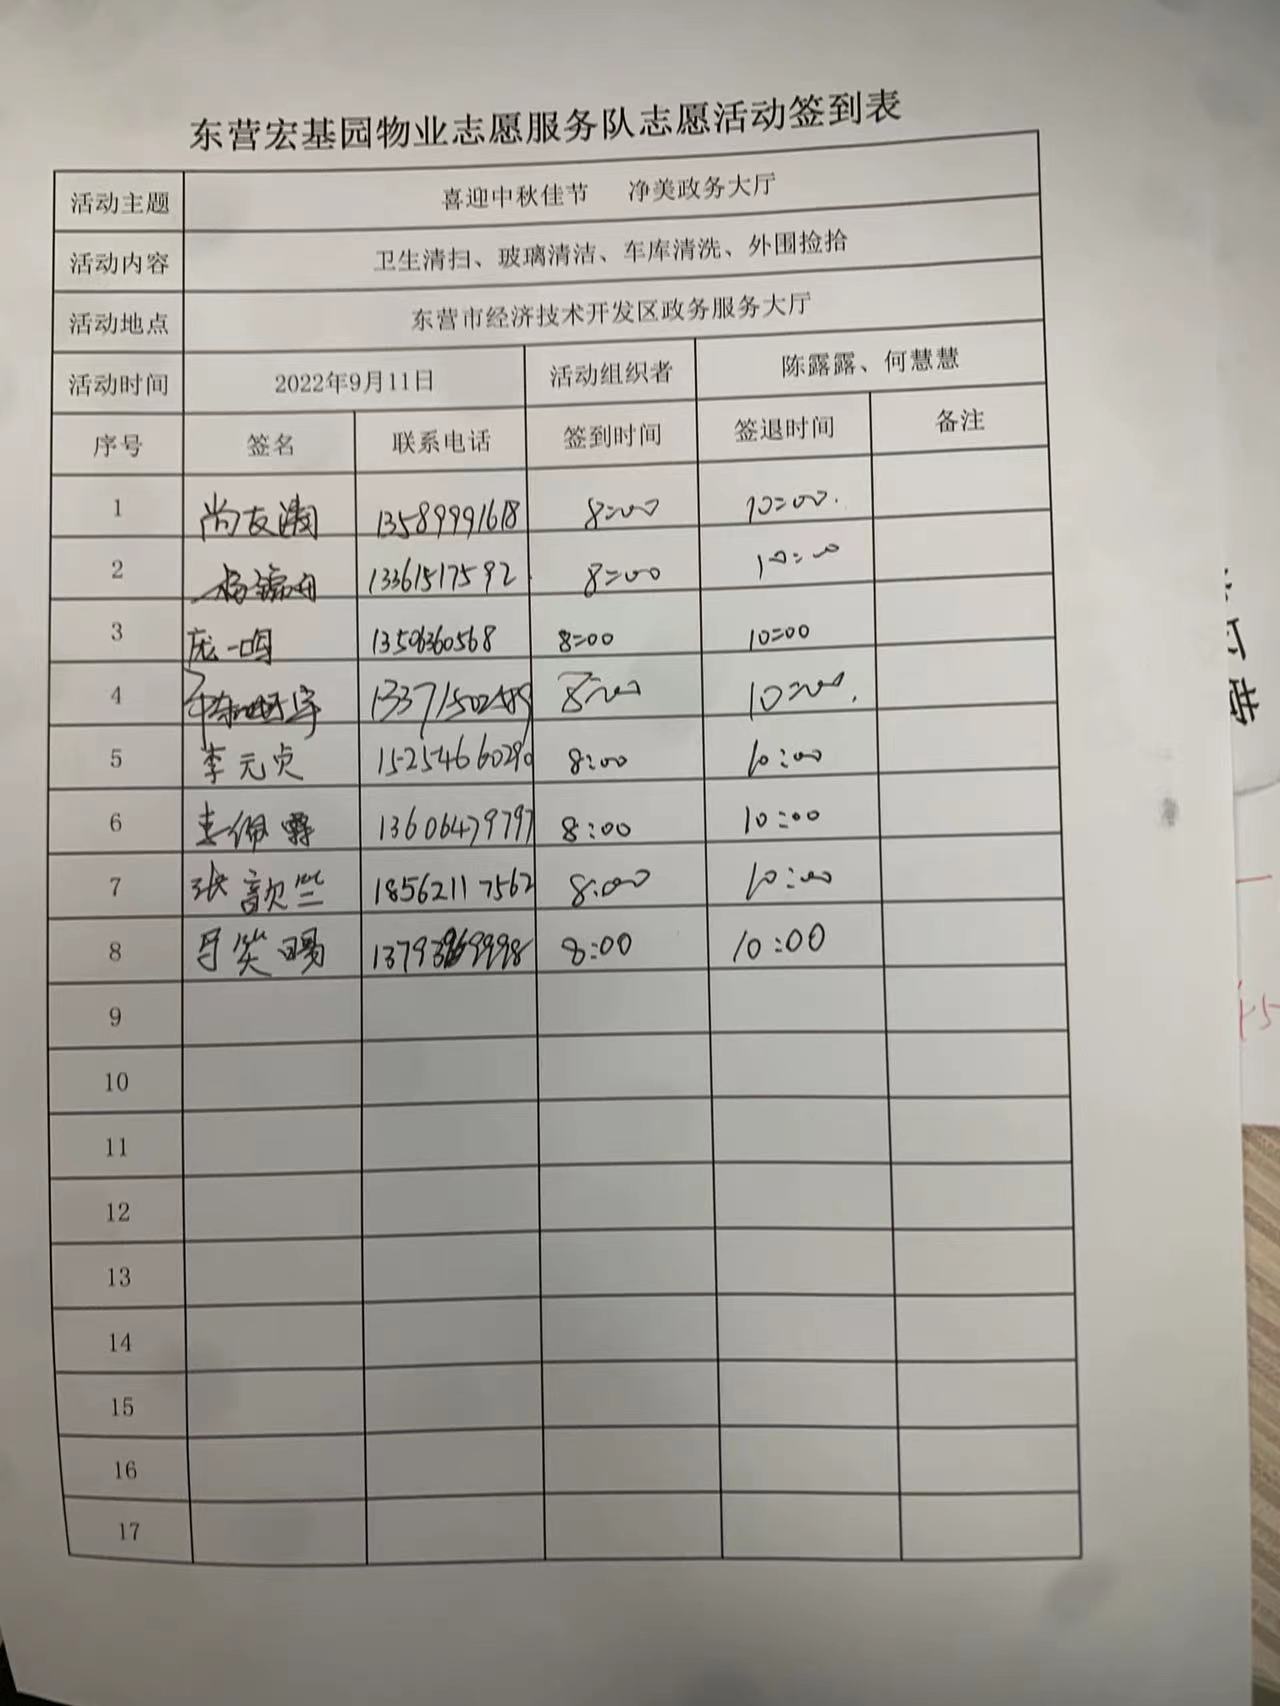 东营宏基园物业志愿服务队志愿活动签到表
活动主题 喜迎中秋佳节 净美政务大厅
活动内容 卫生清扫、玻璃清洁、车库清洗、外围捡拾
活动地点 东营市经济技术开发区政务服务大厅
活动时间 2022年9月11日 活动组织者 陈露露、何慧慧
序号 签名 联系电话 签到时间 签退时间 备注
1 13589991618 8:00 10:00.
2 13361517592 8:00 10:00
3 庞一鸣 13506360568 8:00 10:00
4 8:00 10:00.
5 李元贞 15254660290 8:00 10:00
6 13606479797 8:00 10:00
7 张歆竺 18562117562 8:00 10:00
8 8:00 10:00
9
10
11
12
13
14
15
16
17